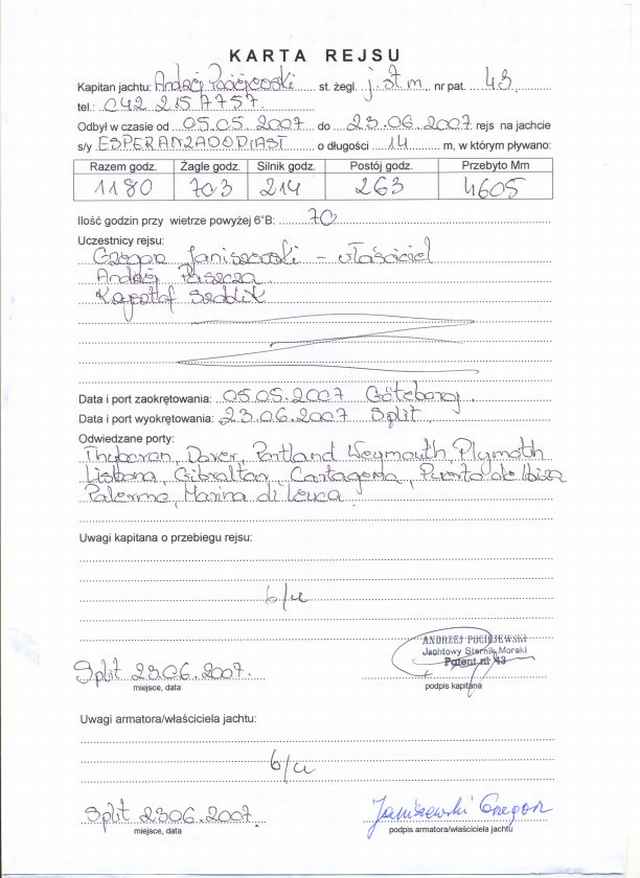 KARTA REJSU
Kapitan jachtu: Andrzej Pociejewski st. żegl. j. st. m nr pat. 43
tel.: 042 215 7757
Odbył w czasie od 05.05.2007 do 23.06.2007 rejs na jachcie
s/y ESPERANZADOPIAST o długości 14 m, w którym pływano:
Razem godz. Żagle godz. Silnik godz. Postój godz. Przebyto Mm
1180 703 214 263 4605
Ilość godzin przy wietrze powyżej 6°B: 70
Uczestnicy rejsu:
Grzegorz Janiszewski - właściciel
Andrzej
Krzysztof
Data i port zaokrętowania: 05.05.2007 Göteborg
Data i port wyokrętowania: 23.06.2007 Split
Odwiedzane porty:
Thyboron, Dover, Portland Weymouth, Plymoth
Lisbona, Gibraltar, Cartagena, Puerto de Ibiza
Palermo, Marina di Leuca
Uwagi kapitana o przebiegu rejsu:
b/u
ANDRZEJ POCIEJEWSKI
Jachtowy Sternik Morski
Patent nr 43
Split 23.06.2007.
miejsce, data podpis kapitana
Uwagi armatora/właściciela jachtu:
b/u
Split 23.06.2007. Janiszewski Grzegorz
miejsce, data podpis armatora/właściciela jachtu